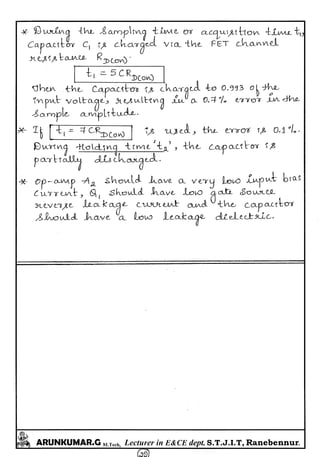 * During the Sampling time or acquisition time t1,
Capacitor C1 is charged via the FET channel
resistance RD(on).
t1 = 5CRD(on)
Then the Capacitor is charged to 0.993 of the
input voltage, resulting in a 0.7% error in the
Sample amplitude.
* If t1 = 7CRD(on) is used, the error is 0.1%.
During Holding time 't2', the capacitor is
partially discharged.
* op-amp A2 should have a very low input bias
Current, Q1 should have low gate Source
reverse leakage current and the capacitor
should have a low leakage dielectric.
ARUNKUMAR.G M.Tech, Lecturer in E&CE dept. S.T.J.I.T, Ranebennur.